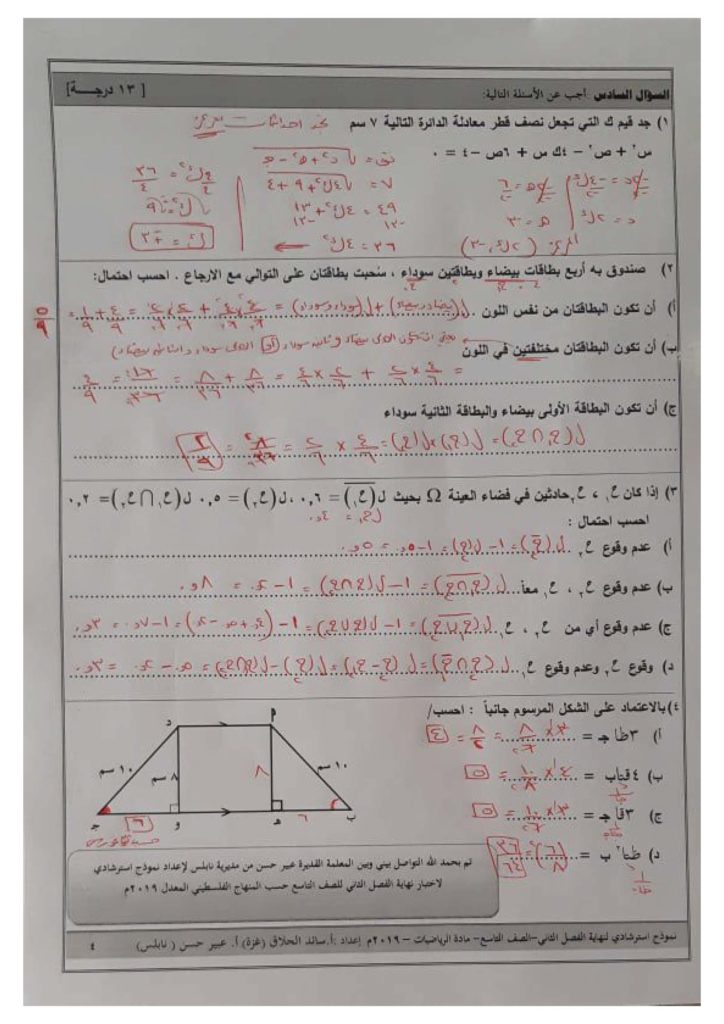 السؤال السادس: أجب عن الأسئلة التالية: [ ١٣ درجـــة]
١) جد قيم ك التي تجعل نصف قطر معادلة الدائرة التالية ٧ سم نجد احداثيات المركز
س٢ + ص٢ − ٤ك س + ٦ص − ٤ = ٠
٧ = √٤ك٢ + ٩ + ٤
٤٩ = ٤ك٢ + ١٣
٣٦ = ٤ك٢
المركز (٢ك، −٣)
د = ٢ك هـ = −٣
ك = ±٣
٢) صندوق به أربع بطاقات بيضاء وبطاقتين سوداء ، سُحبت بطاقتان على التوالي مع الارجاع . احسب احتمال:
أ) أن تكون البطاقتان من نفس اللون ل(بيضاء وبيضاء) + ل(سوداء وسوداء) = ٤/٦ × ٤/٦ + ٢/٦ × ٢/٦ = ٤/٩ + ١/٩ = ٥/٩
ب) أن تكون البطاقتان مختلفتين في اللون
= ٤/٦ × ٢/٦ + ٢/٦ × ٤/٦ = ٨/٣٦ + ٨/٣٦ = ١٦/٣٦ = ٤/٩
ج) أن تكون البطاقة الأولى بيضاء والبطاقة الثانية سوداء
ل(ح١∩ح٢) = ل(ح١)×ل(ح٢) = ٤/٦ × ٢/٦ = ٨/٣٦ = ٢/٩
٣) إذا كان ح١ ، ح٢ حادثين في فضاء العينة Ω بحيث ل(ح١‾) = ٠,٦ ، ل(ح٢) = ٠,٥ ل(ح١∩ح٢) = ٠,٢
احسب احتمال : ل(ح١) = ٠,٤
أ) عدم وقوع ح٢ ل(ح٢‾) = ١ − ل(ح٢) = ١ − ٠,٥ = ٠,٥
ب) عدم وقوع ح١ ، ح٢ معاً ل(ح١∩ح٢‾) = ١ − ل(ح١∩ح٢) = ١ − ٠,٢ = ٠,٨
ج) عدم وقوع أي من ح١ ، ح٢ ل(ح١∪ح٢‾) = ١ − ل(ح١∪ح٢) = ١ − (٠,٤ + ٠,٥ − ٠,٢) = ١ − ٠,٧ = ٠,٣
د) وقوع ح٢ وعدم وقوع ح١ ل(ح٢∩ح١‾) = ل(ح٢ − ح١) = ل(ح٢) − ل(ح١∩ح٢) = ٠,٥ − ٠,٢ = ٠,٣
٤) بالاعتماد على الشكل المرسوم جانباً : احسب/
أ) ٣ظا جـ = ٣ × ٨/٦ = ٨/٢ = ٤
ب) ٤ قتاب = ٤ × ١٠/٨ = ٥
ج) ٣قا جـ = ٣ × ١٠/٦ = ٥
د) ظتا٢ ب = (٦/٨)٢ = ٣٦/٦٤
د
١٠ سم
٨ سم
٨
١٠ سم
جـ
٦
و
هـ
٦
ب
تم بحمد الله التواصل بيني وبين المعلمة القديرة عبير حسن من مديرية نابلس لإعداد نموذج استرشادي
لاختبار نهاية الفصل الثاني للصف التاسع حسب المنهاج الفلسطيني المعدل ٢٠١٩م
نموذج استرشادي لنهاية الفصل الثاني–الصف التاسع– مادة الرياضيات – ٢٠١٩م إعداد :أ.سائد الحلاق (غزة) أ. عبير حسن ( نابلس) ٤